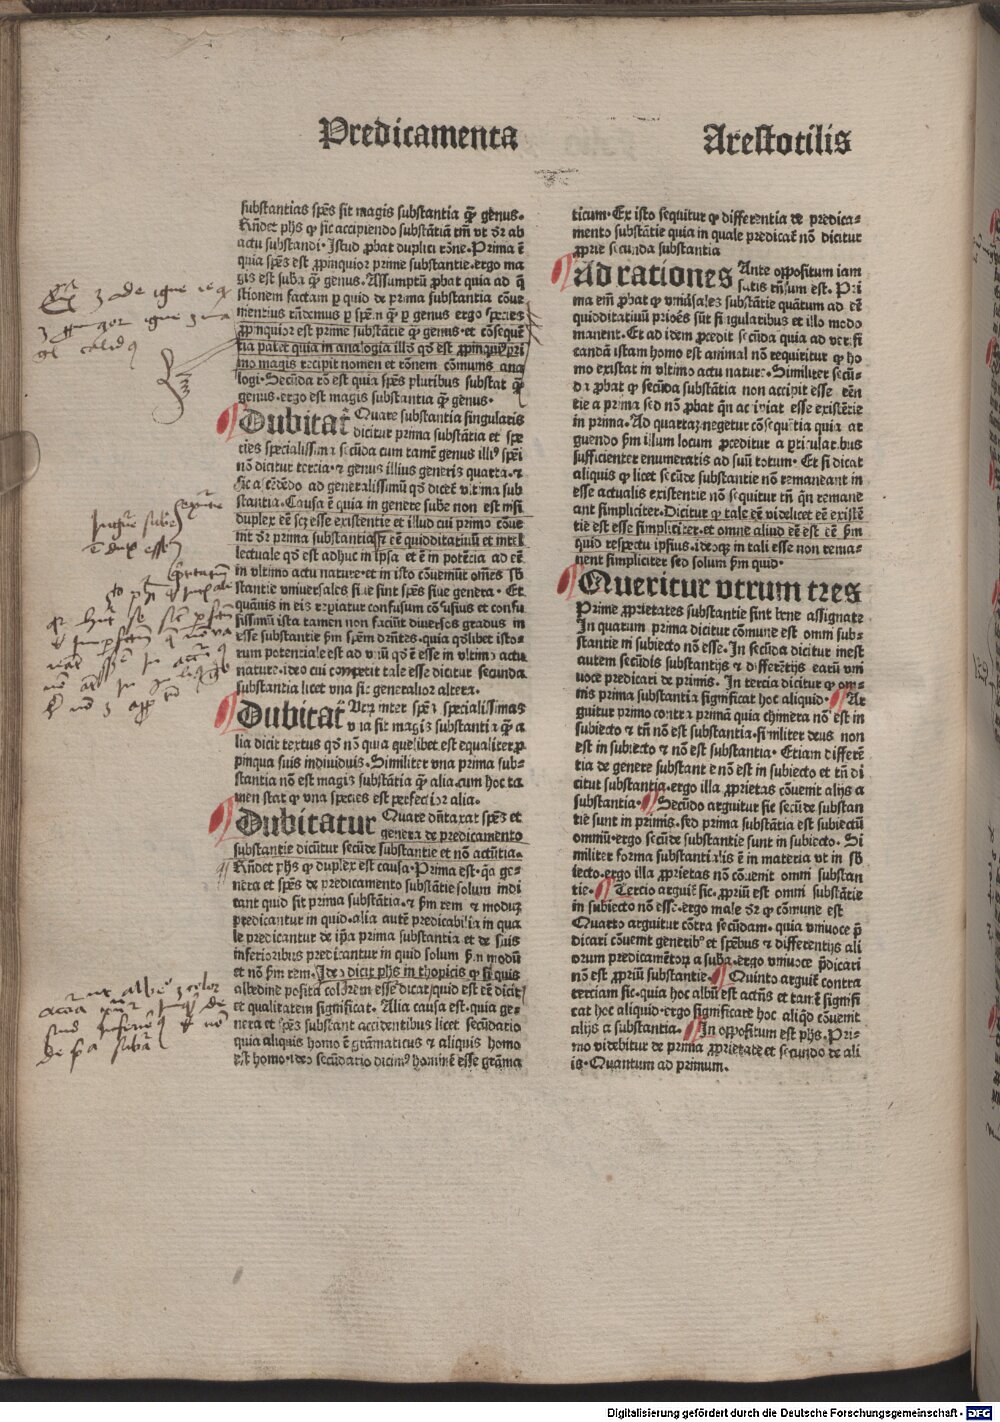 Predicamenta Arestotilis
substantias spēs sit magis substantia q̄ȝ genus.
Rn̄det phs ꝙ sic accipiendo substātiā tm̄ vt dr̄ ab
actu substandi. Istud ꝓbat duplici rōne. Prima ē
quia spēs est ꝓpinquior prime substantie. ergo ma
gis est suba q̄ȝ genus. Assumptū ꝓbat quia ad q̄
stionem factam ꝑ quid de prima substantia cōue
nientius rn̄demus ꝑ spēm q̄ȝ ꝑ genus ergo species
ꝓpinquior est prime substātie q̄ȝ genus. et cōsequētia
tia patet quia in analogia illō qd̄ est ꝓpinquiꝰ pri
mo magis recipit nomen et rōnem cōmunis ana
logi. Secūda rō est quia spēs pluribus substat q̄ȝ
genus. ergo est magis substantia q̄ȝ genus.
Dubitat̄ Quare substantia singularis
dicitur prima substātia et spe
cies specialissima secūda cum tamē genus illiꝰ spēi
nō dicitur tercia. ⁊ genus illius generis quarta. ⁊
sic ascēdēdo ad generalissimū qd̄ diceret̄ vltima sub
stantia. Causa ē quia in genere sube non est nisi
duplex eē scȝ esse existentie et illud cui primo cōue
nit dr̄ prima substantia. et eē quidditatiuū et intel
lectuale qd̄ est adhuc in ipsa et ē in potētia ad eē
in vltimo actu nature. et in isto cōueniūt om̄es sb̄
stantie vniuersales siue sint spēs siue genera. Et
quāuis in eis repiatur confusum cōfusius et confu
sissimū ista tamen non faciūt diuersos gradus in
esse substantie ꝑm spēm dr̄ntes. quia qd̄libet isto-
rum potentiale est ad vnū qd̄ ē esse in vltimo actu
nature. ideo cui competit tale esse dicitur secunda
substantia licet vna sit generalior altera.
Dubitat̄ Vtrȝ inter spēs specialissimas
vna sit magis substantia q̄ȝ a
lia dicit textus qd̄ nō quia quelibet est equaliter ꝓ
pinqua suis indiuiduis. Similiter vna prima sub-
stantia nō est magis substātia q̄ȝ alia. cum hoc ta
men stat ꝙ vna species est perfectior alia.
Dubitatur Quare dn̄taxat spēs et
genera de predicamento
substantie dicūtur secūde substantie et nō accn̄tia.
Rn̄det phs ꝙ duplex est causa. Prima est. qa ge-
nera et spēs de predicamento substātie solum indi
cant quid sit prima substātia. ⁊ ꝑm rem ⁊ modūȝ
predicantur in quid. alia autē predicabilia in qua
le predicantur de ip̄a prima substantia et de suis
inferioribus predicantur in quid solum ꝑm modū
et nō ꝑm rem. Ideo dicit phs in thopicis ꝙ si quis
albedine posita colorem esse dicat quid est eē dicit
et qualitatem significat. Alia causa est. quia ge-
nera et spēs substant accidentibus licet secūdario
quia aliquis homo ē grāmaticus ⁊ aliquis homo
est homo. ideo secūdario dicimꝰ hominē esse grāma
ticum. Ex isto sequitur ꝙ differentia de predica-
mento substātie quia in quale predicat̄ nō dicitur
ꝓprie secunda substantia
Ad rationes Ante oppositum iam
satis rn̄sum est. Pri
ma em̄ ꝓbat ꝙ vniuersales substātie quātum ad eē
quidditatiuū prioēs sūt singularibus et illo modo
manent. Et ad idem ꝓcedit secūda quia ad verifi
candā istam homo est animal nō requiritur ꝙ ho
mo existat in vltimo actu nature. Similiter secū-
da ꝓbat ꝙ secūda substātia non accipit esse eēn
tie a prima sed nō ꝓbat qn̄ accipiat esse existētie
in prima. Ad quartaȝ negetur cōsequētia quia ar
guendo ꝑm illum locum ꝓceditur a ꝑticularibus
sufficienter enumeratis ad suū totum. Et si dicat̄
aliquis ꝙ licet secūde substantie nō remaneant in
esse actualis existentie nō sequitur tn̄ qn̄ remane
ant simpliciter. Dicitur ꝙ tale eē videlicet eē existē
tie est esse simpliciter. et omne aliud eē est eē ꝑm
quid respectu ipsius. ideoqȝ in tali esse non rema-
nent simpliciter sed solum ꝑm quid.
Queritur vtrum tres
Prime ꝓprietates substantie sint bene assignate
In quarum prima dicitur cōmune est omni sub-
stantie in subiecto nō esse. In secūda dicitur inest
autem secūdis substantijs ⁊ differētijs earū vni
uoce predicari de primis. In tercia dicitur ꝙ om-
nis prima substantia significat hoc aliquid. Ar
guitur primo contra primā quia chimera nō est in
subiecto ⁊ tn̄ nō est substantia. similiter deus non
est in subiecto ⁊ nō est substantia. Etiam differē
tia de genere substantie nō est in subiecto et tn̄ di
citur substantia. ergo illa ꝓprietas cōuenit alijs a
substantia. Secūdo arguitur sic secūde substan
tie sunt in primis. sed prima substātia est subiectū
omniū. ergo secūde substantie sunt in subiecto. Si
militer forma substantialis ē in materia vt in sb̄
iecto. ergo illa ꝓprietas nō cōuenit omni substan
tie. Tercio arguit̄ sic. ꝓpriū est omni substātie
in subiecto nō esse. ergo male dr̄ ꝙ cōmune est
Quarto arguitur cōtra secūdam. quia vniuoce p̄
dicari cōuenit generibꝰ et spēbus ⁊ differentijs ali
orum predicamētorꝝ a suba. ergo vniuoce p̄dicari
nō est ꝓpriū substantie. Quinto arguit̄ contra
terciam sic. quia hoc albū est accn̄s et tamē signifi
cat hoc aliquid. ergo significare hoc aliqd̄ cōuenit
alijs a substantia. In oppositum est phs. Pri-
mo videbitur de prima ꝓprietate et secundo de ali
is. Quantum ad primum.
Digitalisierung gefördert durch die Deutsche Forschungsgemeinschaft - DFG